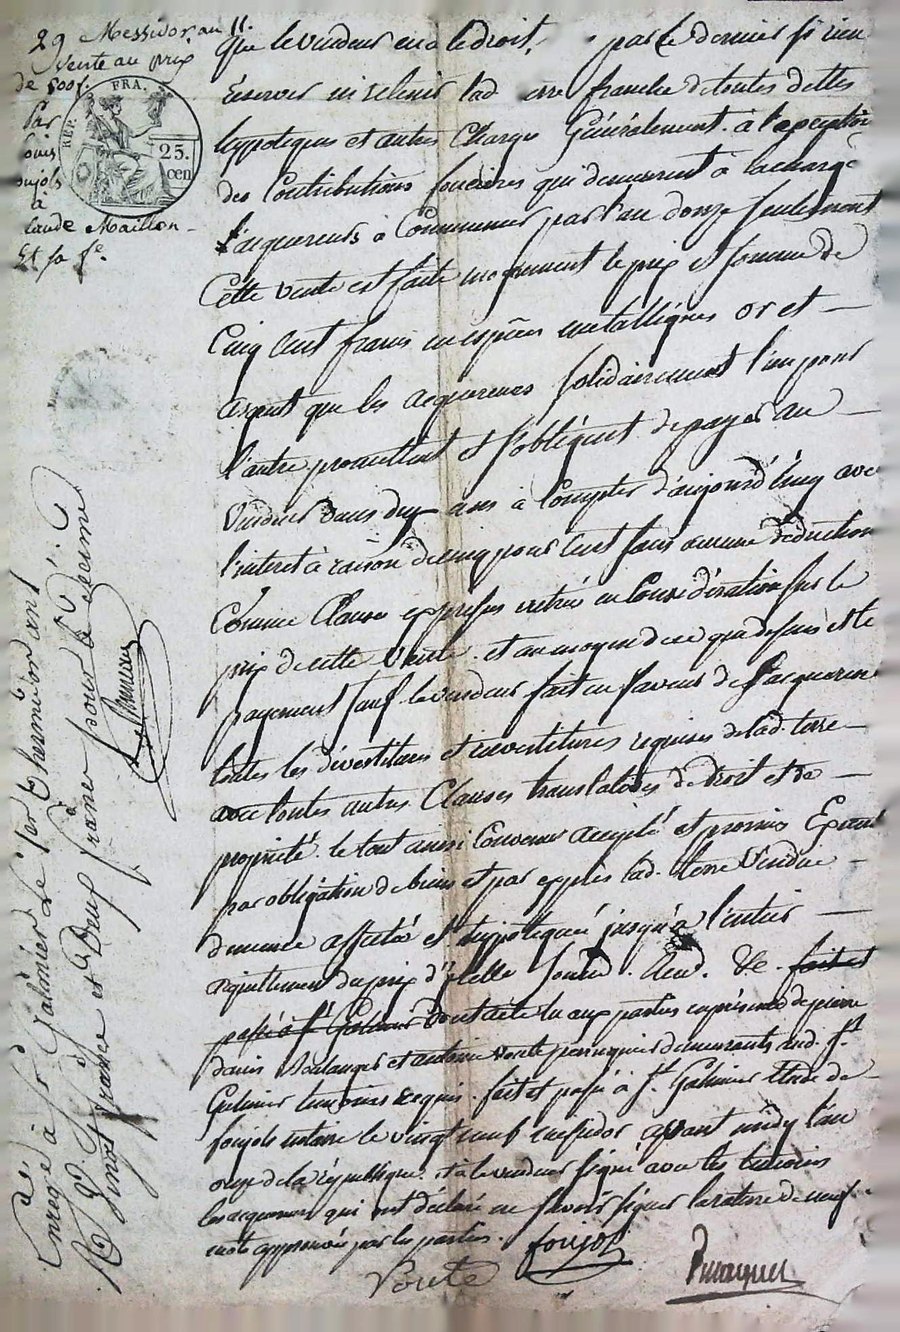 29 Messidor an 11.
Vente au prix
de 500f.
Par
Louis
oujols
à
laude Maillon
Et sa fe.
REP. FRA.
25.
cen
que le vendeur en a le droit, par ce dernier s'i rien
réserver ni retenir lad. erre franche de toutes dettes
hypoteques et autres Charges Généralement. à l'exception
des Contributions foncières qui demeurent à la charge
l'acquereurs à Commencer par l'an douze seulement
Cette vente est faite moyennant le prix et somme de
Cinq Cent francs en espèces métalliques or et
argent que les acquereurs solidairement l'un pour
l'autre promettent et s'obligent de payer au
vendeur dans dix ans à Compter d'aujourd'huy avec
l'interet à raison de cinq pour cent sans aucune déduction
Comme Clause expresse entrée en Considération sur le
prix de cette Vente. et au moyen de ce que dessus est le
payement sauf le vendeur fait en faveur de l'acquereur
toutes les dévestitures et investitures requises de lad. terre
avec toutes autres Clauses translatives de droit et de
propriété. le tout ainsi Convenu accepté et promis Exécuté
par obligation de biens et par exprès lad. terre Vendue
demeure affectée et hypotequée jusqu'à l'entier
aquittement du prix d'icelle Soumd. Rend. &c. fait et
passé à St. Galmier dont acte lu aux parties en présence de pierre
denis Boulanger et antoine Voute perruquier demeurants aud. St.
Galmier temoins requis. fait et passé à St. Galmier Etude de
foujols notaire le vingt neuf messidor avant midy l'an
onze de la république. et a le vendeur signé avec les temoins
les acquereurs qui ont déclaré ne savoir signer la rature de neuf
mots approuvée par les parties.
foujols
Voute
Enregé. à St. Galmier Le 1er Thermidor an 11
R. Vingt francs et Deux francs pour le decime